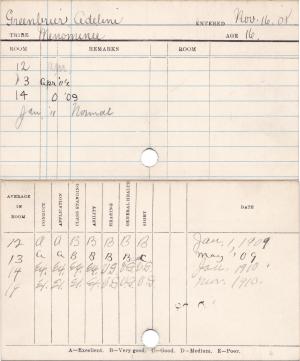 Greenbrier Adeline ENTERED Nov. 16. 08
TRIBE Menominee AGE 16.
ROOM REMARKS ROOM
12 Apr
13 Apr '09
14 O '09
Jan. '11 Normal
AVERAGE IN ROOM CONDUCT APPLICATION CLASS STANDING ABILITY HEARING GENERAL HEALTH SIGHT DATE
12 A A B B B B B Jan, 1, 1909
13 A A B B B B C May '09
14 Jan. 1910
14 1910.
A—Excellent. B—Very good. C—Good. D—Medium. E—Poor.